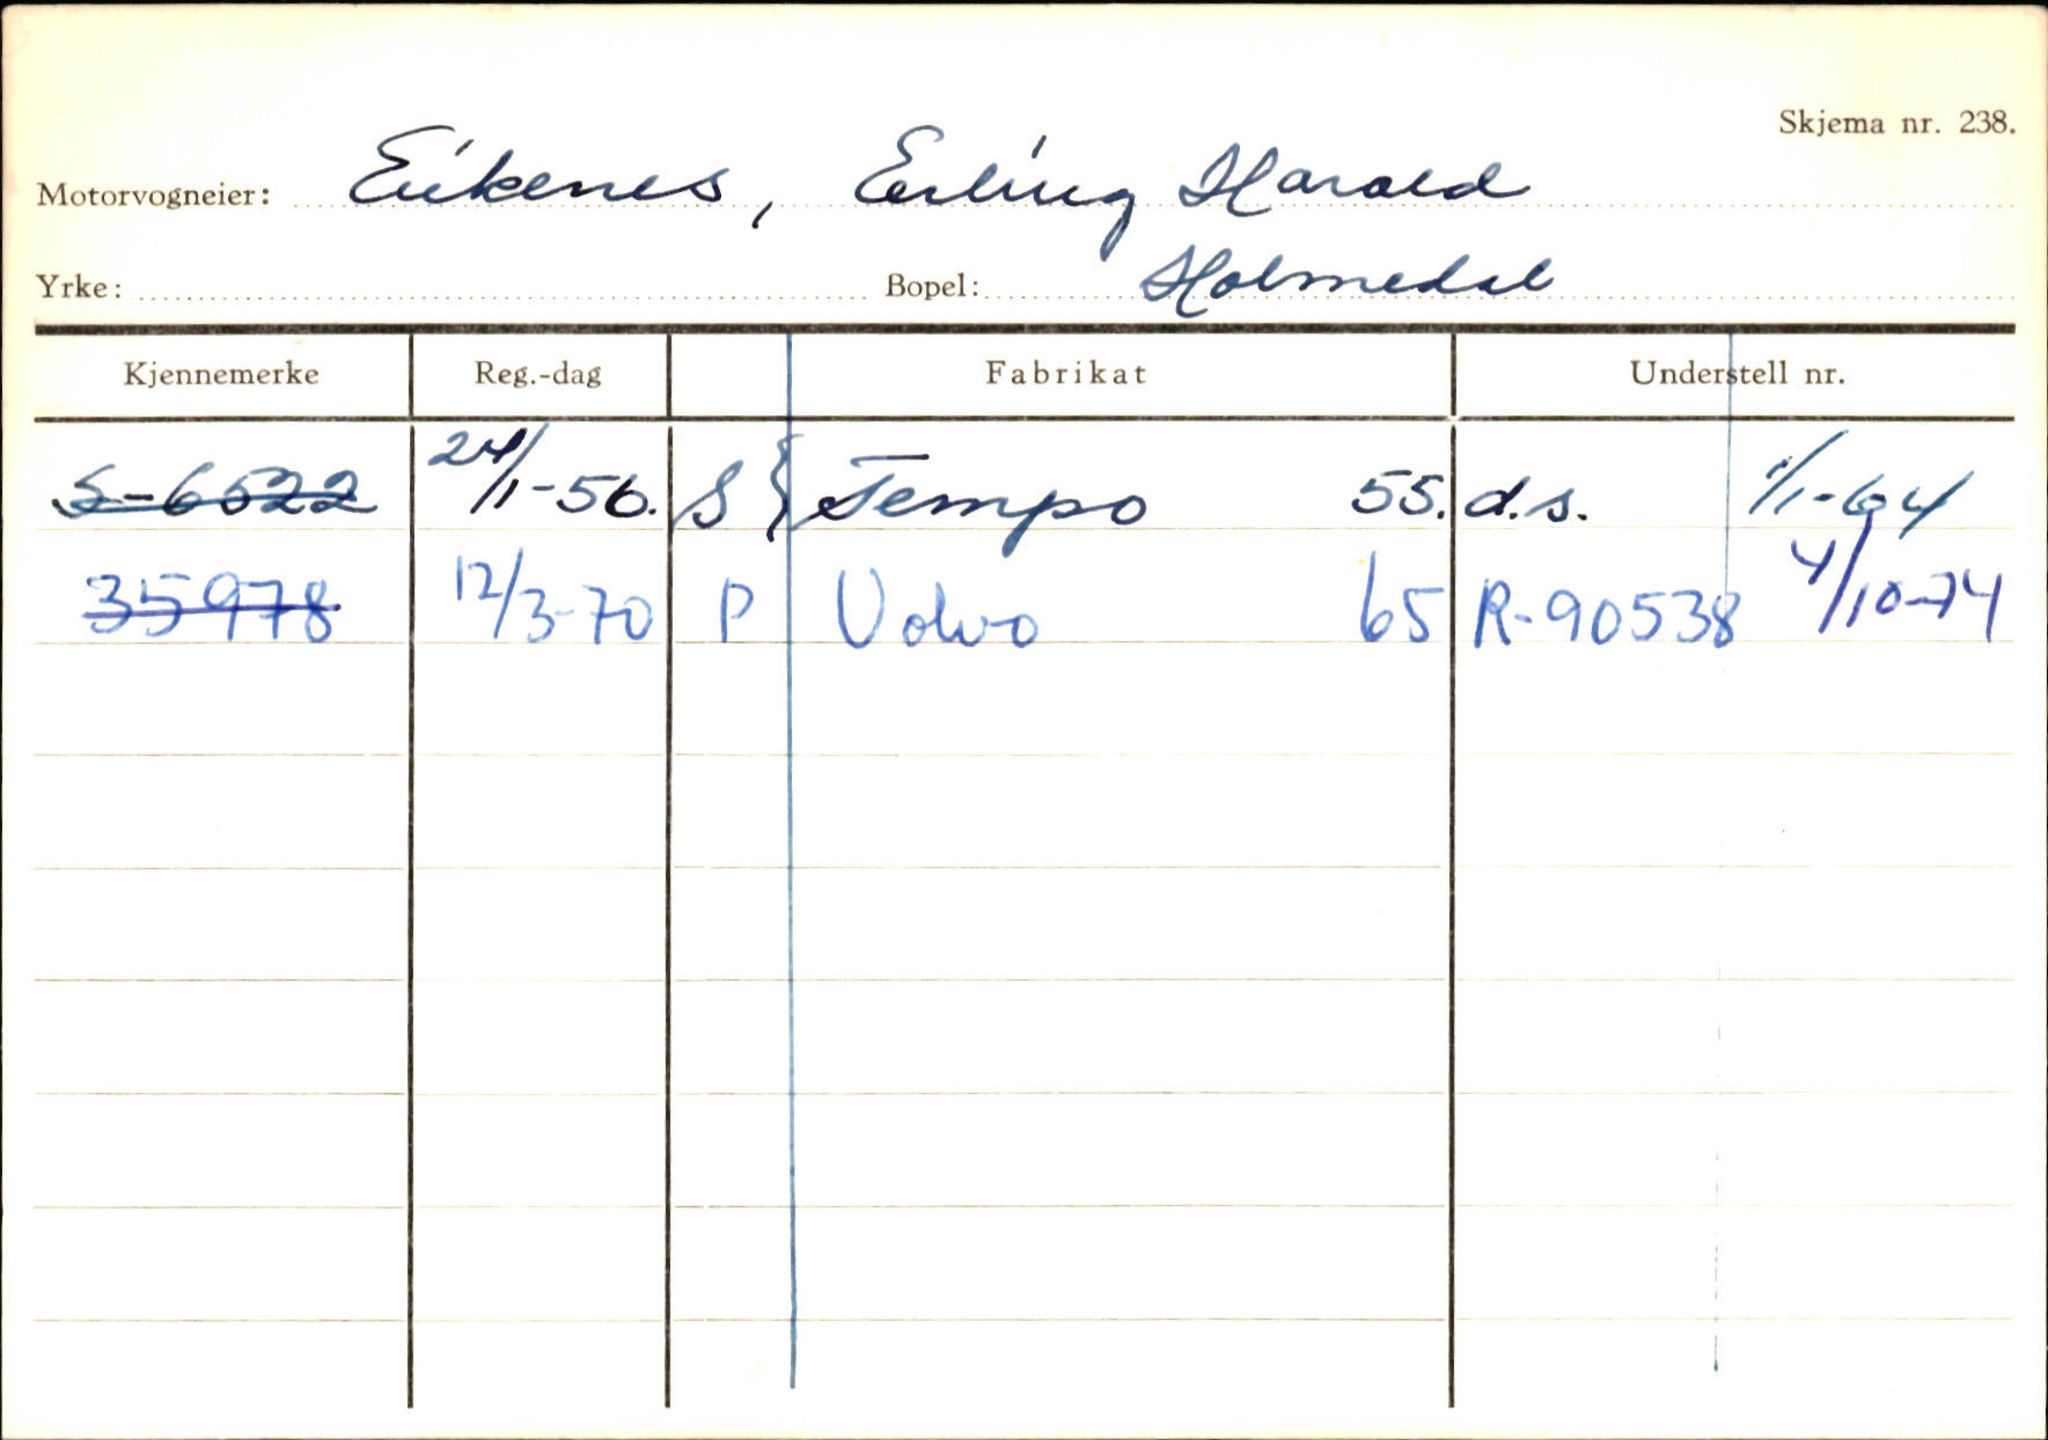 Skjema nr. 238.
Motorvogneier: Eikenes, Erling Harald
Yrke: Bopel: Holmedal
Kjennemerke Reg.-dag Fabrikat Understell nr.
S-6522 24/1-56. S { Tempo 55. d.s. 1/1-64
35978 12/3-70 P Volvo 65 R-90538 4/10-74